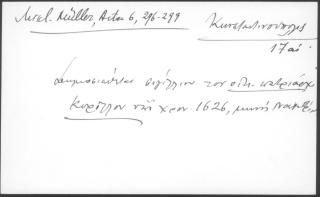 Micl. Müller, Acta 6, 296-299
Κωνσταντινούπολις
17 αἰ.
Δημοσιεύεται σιγίλλιον τοῦ οἰκ. πατριάρχ
Κυρίλλου τοῦ χρον. 1626, μηνὶ